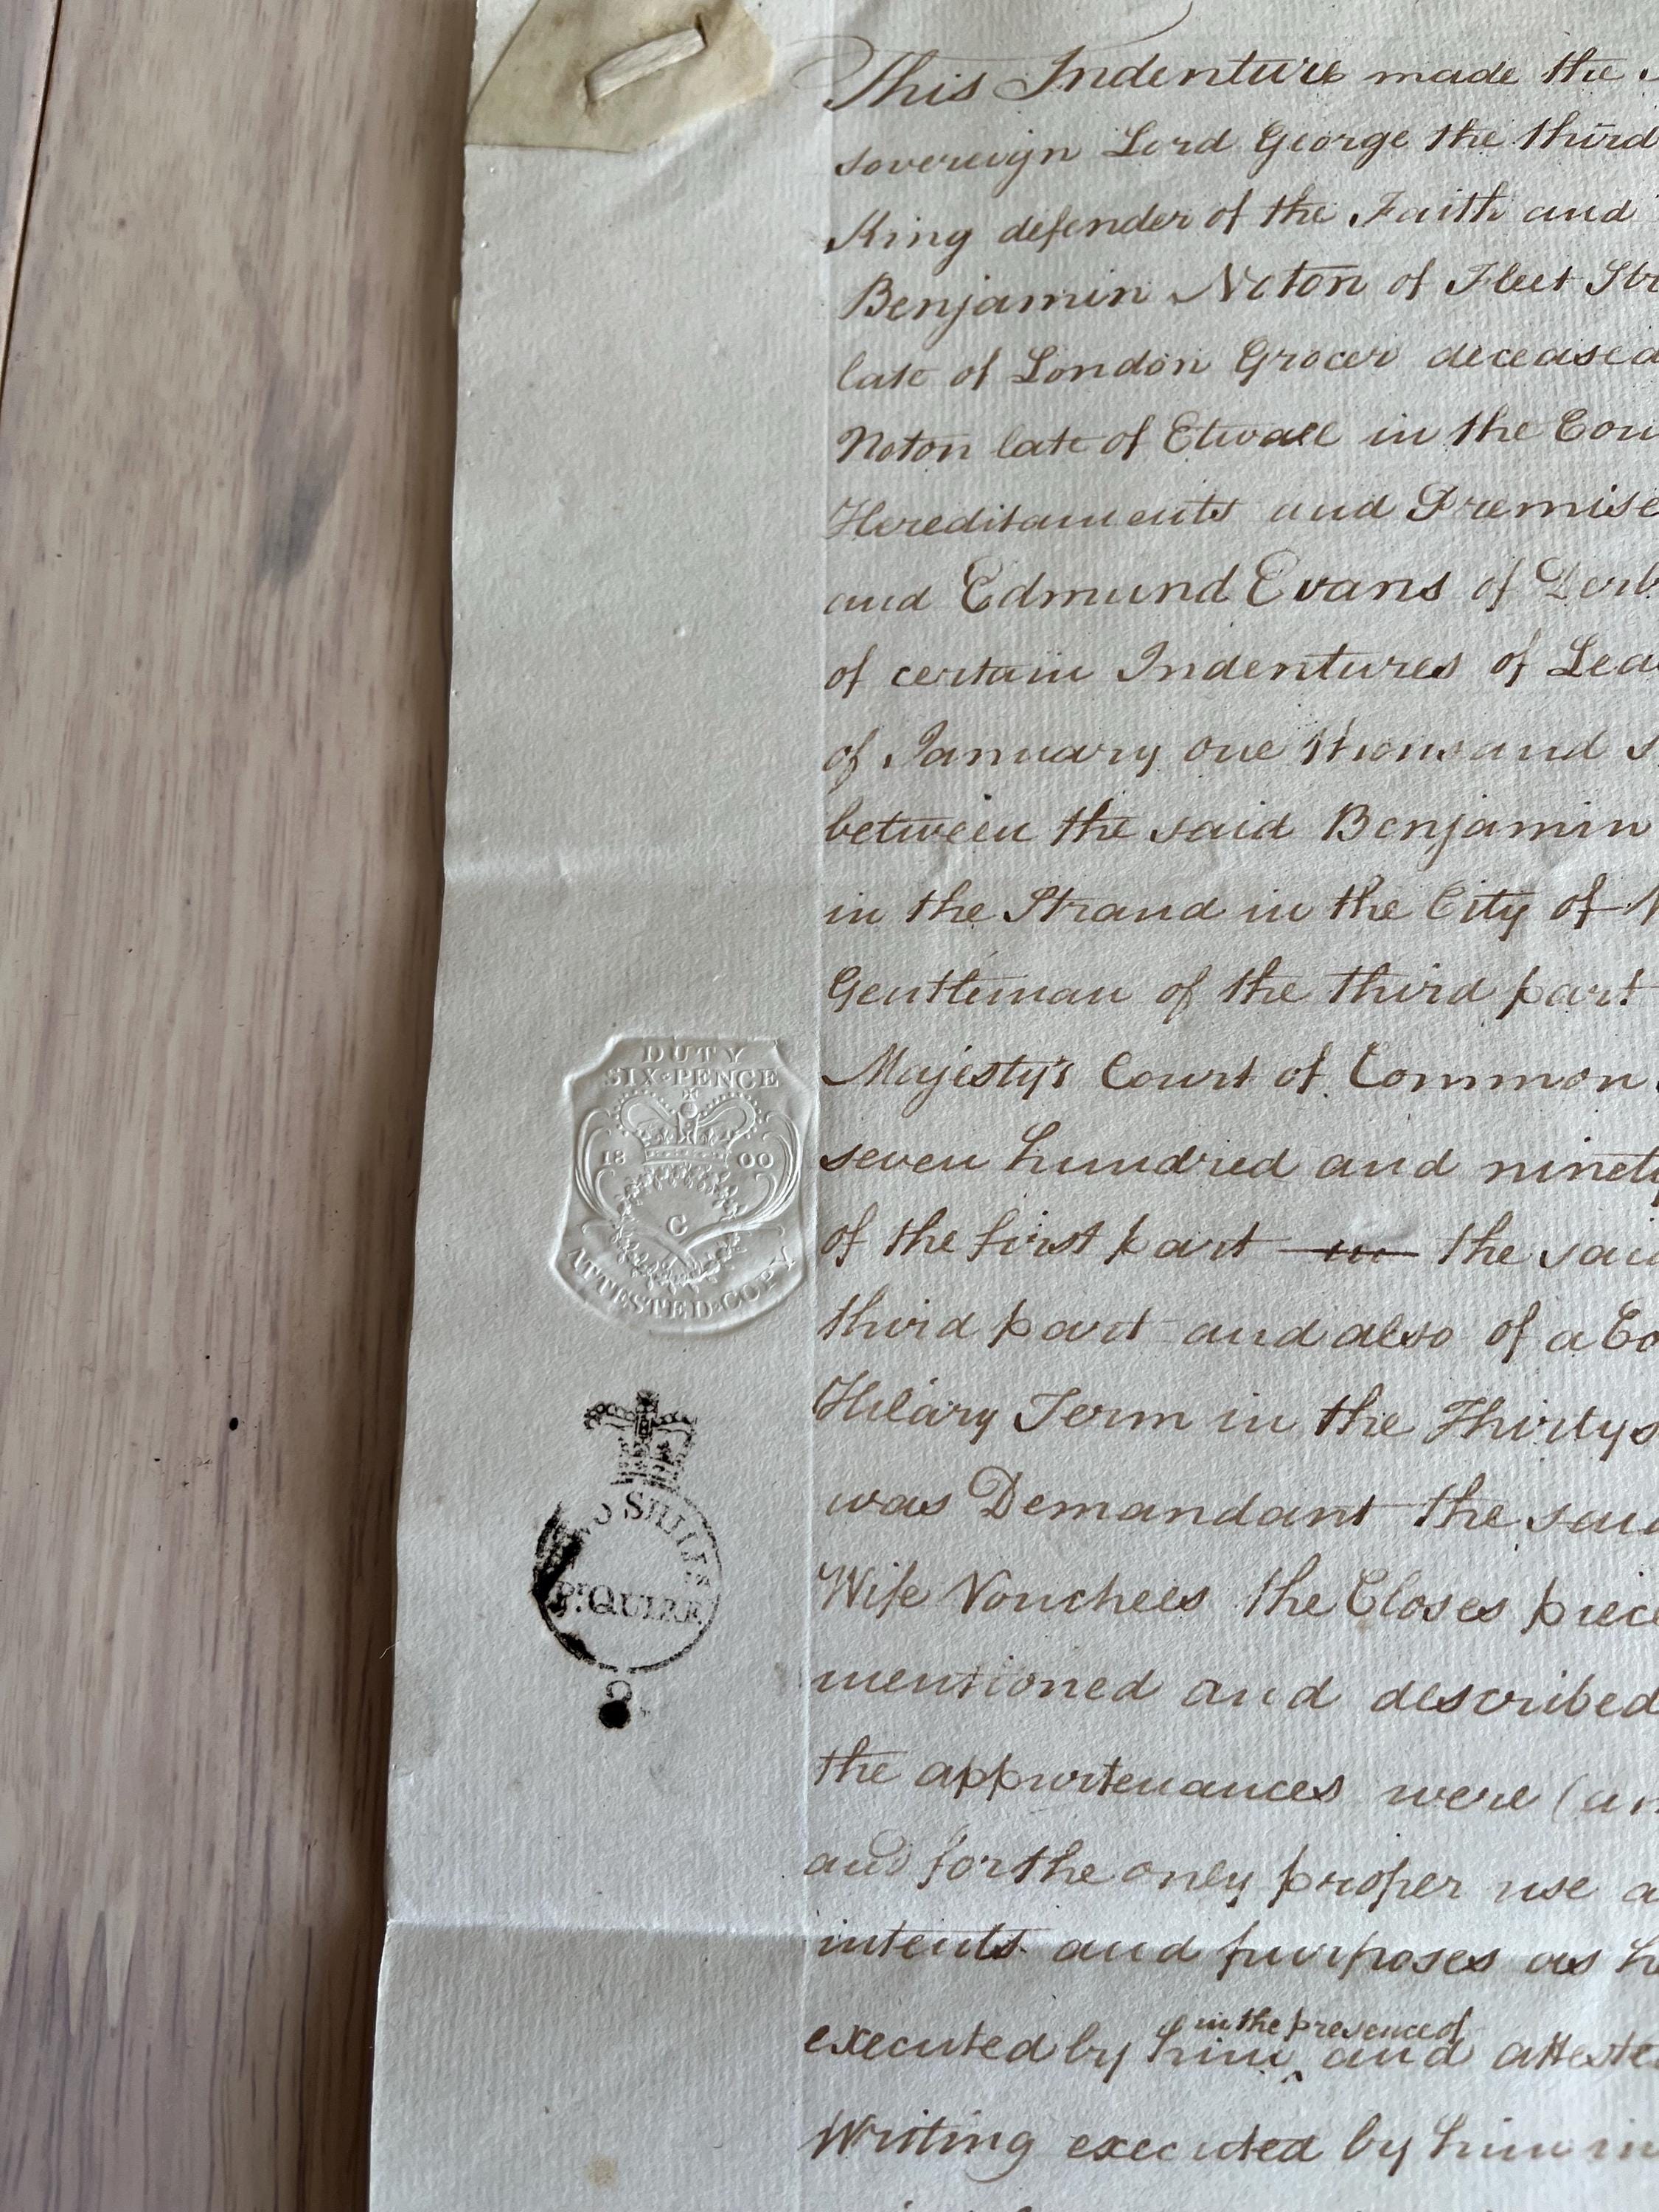 This Indenture made the
sovereign Lord George the third
King defender of the Faith and
Benjamin Noton of Fleet Str
late of London Grocer deceased
Noton late of Etwall in the Cou
Hereditaments and Premise
and Edmund Evans of Derb
of certain Indentures of Lea
of January one thousand s
between the said Benjamin
in the Strand in the City of
Gentleman of the third part
Majesty's Court of Common
seven hundred and ninety
of the first part in the said
third part and also of a Co
Hilary Term in the Thirtys
was Demandant the said
Wife Vouchees the Closes piece
mentioned and described
the appurtenances were (an
and for the only proper use a
intents and purposes as h
in the presence of
executed by him ^ and atteste
Writing executed by him in
DUTY
SIX·PENCE
18 00
G
ATTESTED·COPY
SHILLS
Pr. QUIRE